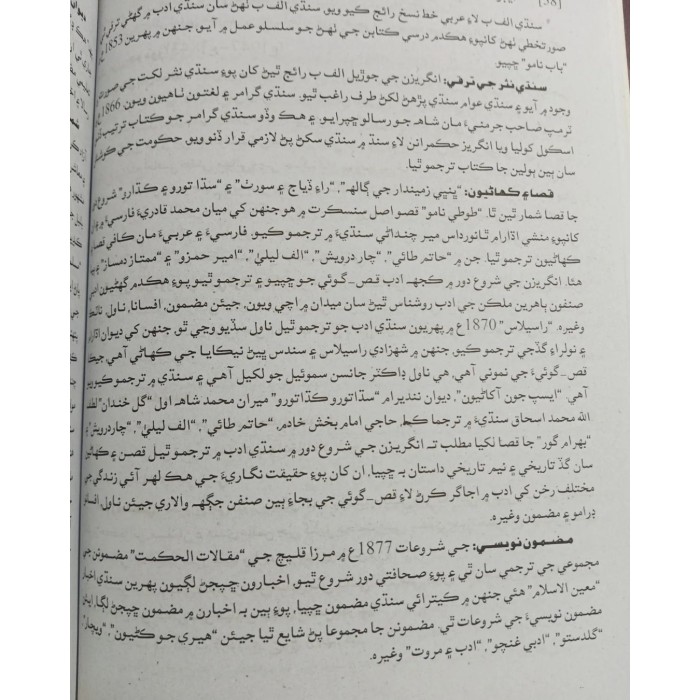 [58]
* سنڌي الف ب لاءِ عربي خط نسخ رائج ڪيو ويو. سنڌي الف ب لھڻ سان سنڌي ادب ۾ گھڻي ترقي
صورتخطي لھڻ کانپوءِ هڪدم درسي ڪتابن جي لھڻ جو سلسلو عمل ۾ آيو. جنهن ۾ پهرين 1853ع
“باب نامو” ڇپيو.
سنڌي نثر جي ترقي: انگريزن جي جوڙيل الف ب رائج ٿيڻ کان پوءِ سنڌي نثر لکت جي صورت
وجود ۾ آيو ۽ سنڌي عوام سنڌي پڙهڻ لکڻ طرف راغب ٿيو. سنڌي گرامر ۽ لغتون ٺاهيون ويون. 1866ع
ٽرمپ صاحب جرمنيءَ مان شاهه جو رسالو ڇپرايو. ۽ هڪ وڏو سنڌي گرامر جو ڪتاب ترتيب
اسڪول کوليا ويا انگريز حڪمرانن لاءِ سنڌ ۾ سنڌي سکڻ پڻ لازمي قرار ڏنو ويو. حڪومت جي ڪوشش
سان ٻين ٻولين جا ڪتاب ترجمو ٿيا.
قصا ۽ ڪهاڻيون: “ڀنڀي زميندار جي ڳالهه”، “راءِ ڏياچ ۽ سورٺ” ۽ “سڌا تورو ۽ ڪڌا رو” شروع
جا قصا شمار ٿين ٿا. “طوطي نامو” قصو اصل سنسڪرت ۾ هو جنهن کي ميان محمد قادريءَ فارسيءَ ۾
کانپوءِ منشي اڌارام ٿانورداس مير چنداڻي سنڌيءَ ۾ ترجمو ڪيو. فارسيءَ ۽ عربيءَ مان ڪافي قصا
ڪهاڻيون ترجمو ٿيا. جن ۾ “حاتم طائي”، “چار درويش”، “الف ليليٰ”، “امير حمزو” ۽ “ممتاز دمساز” ۽
هئا. انگريزن جي شروع دور ۾ ڪجهه ادب قصـ گوئي جو ڇپيو ۽ ترجمو ٿيو پوءِ هڪدم گھڻيون ادبي
صنفون ٻاهرين ملڪن جي ادب روشناس ٿيڻ سان ميدان ۾ اچي ويون. جيئن مضمون، افسانا، ناول، ناٽڪ
وغيره. “راسيلاس” 1870ع ۾ پهريون سنڌي ادب جو ترجمو ٿيل ناول سڏيو وڃي ٿو، جنهن کي ديوان اڌارام
۽ نولراءِ گڏجي ترجمو ڪيو. جنهن ۾ شهزادي راسيلاس ۽ سندس ڀيڻ نيڪايا جي ڪهاڻي آهي. جيڪا
قصـ گوئيءَ جي نموني آهي، هي ناول ڊاڪٽر جانسن سموئيل جو لکيل آهي ۽ سنڌي ۾ ترجمو ڪيو ويو
آهي. “ايسپ جون آکاڻيون”، ديوان ننديرام “سڌا تورو ڪڌا تورو” ميران محمد شاهه اول “گل خندان” لطف
الله محمد اسحاق سنڌيءَ ۾ ترجما ڪيا، حاجي امام بخش خادم، “حاتم طائي”، “الف ليليٰ”، “چار درويش” ۽
“بهرام گور” جا قصا لکيا مطلب تہ انگريزن جي شروع دور ۾ سنڌي ادب ۾ ترجمو ٿيل قصن ۽ ڪهاڻين
سان گڏ تاريخي ۽ نيم تاريخي داستان بہ ڇپيا، ان کان پوءِ حقيقت نگاريءَ جي هڪ لهر آئي زندگي جي
مختلف رخن کي ادب ۾ اجاگر ڪرڻ لاءِ قصـ گوئي جي بجاءِ ٻين صنفن جڳهه والاري جيئن ناول، افسانو
ڊرامو ۽ مضمون وغيره.
مضمون نويسي: جي شروعات 1877ع ۾ مرزا قليچ جي “مقالات الحڪمت” مضمونن جي
مجموعي جي ترجمي سان ٿي ۽ پوءِ صحافتي دور شروع ٿيو. اخبارون ڇپجڻ لڳيون پهرين سنڌي اخبار
“معين الاسلام” هئي جنهن ۾ ڪيترائي سنڌي مضمون ڇپيا، پوءِ ٻين بہ اخبارن ۾ مضمون ڇپجڻ لڳا. ايئن
مضمون نويسيءَ جي شروعات ٿي. مضمونن جا مجموعا پڻ شايع ٿيا جيئن “هيري جو ڪڻيون”، “ويچار”
“گلدستو”، “ادبي غنچو”، “ادب ۽ مروت” وغيره.